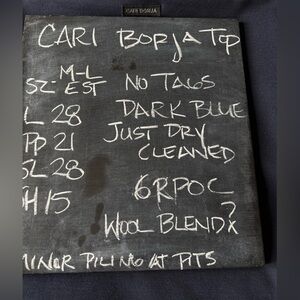 CARI BORJA TOP
SZ- M-L EST NO TAGS
L 28 DARK BLUE
PP 21 JUST DRY
SL 28 CLEANED
H 15 6RPOC
WOOL BLEND?
MINOR PILING AT PITS